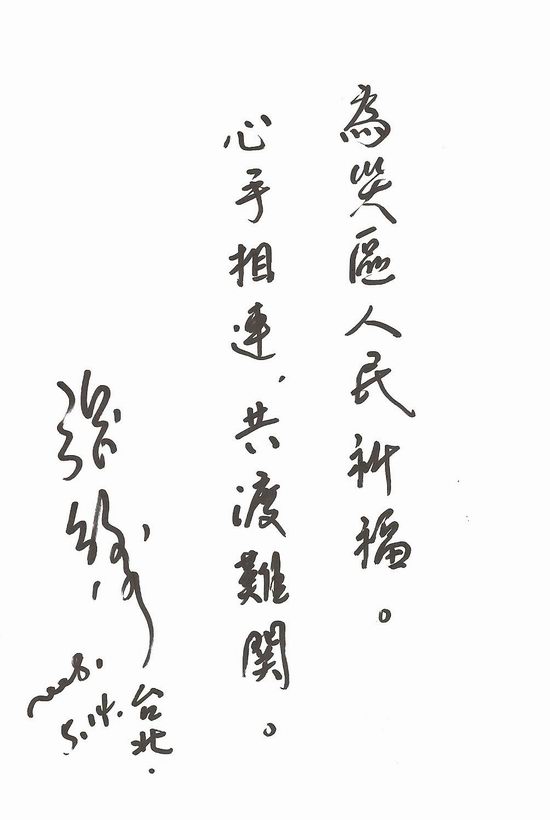 為災區人民祈福。
心手相連，共渡難関。
張
2008.
5.14.
台北.